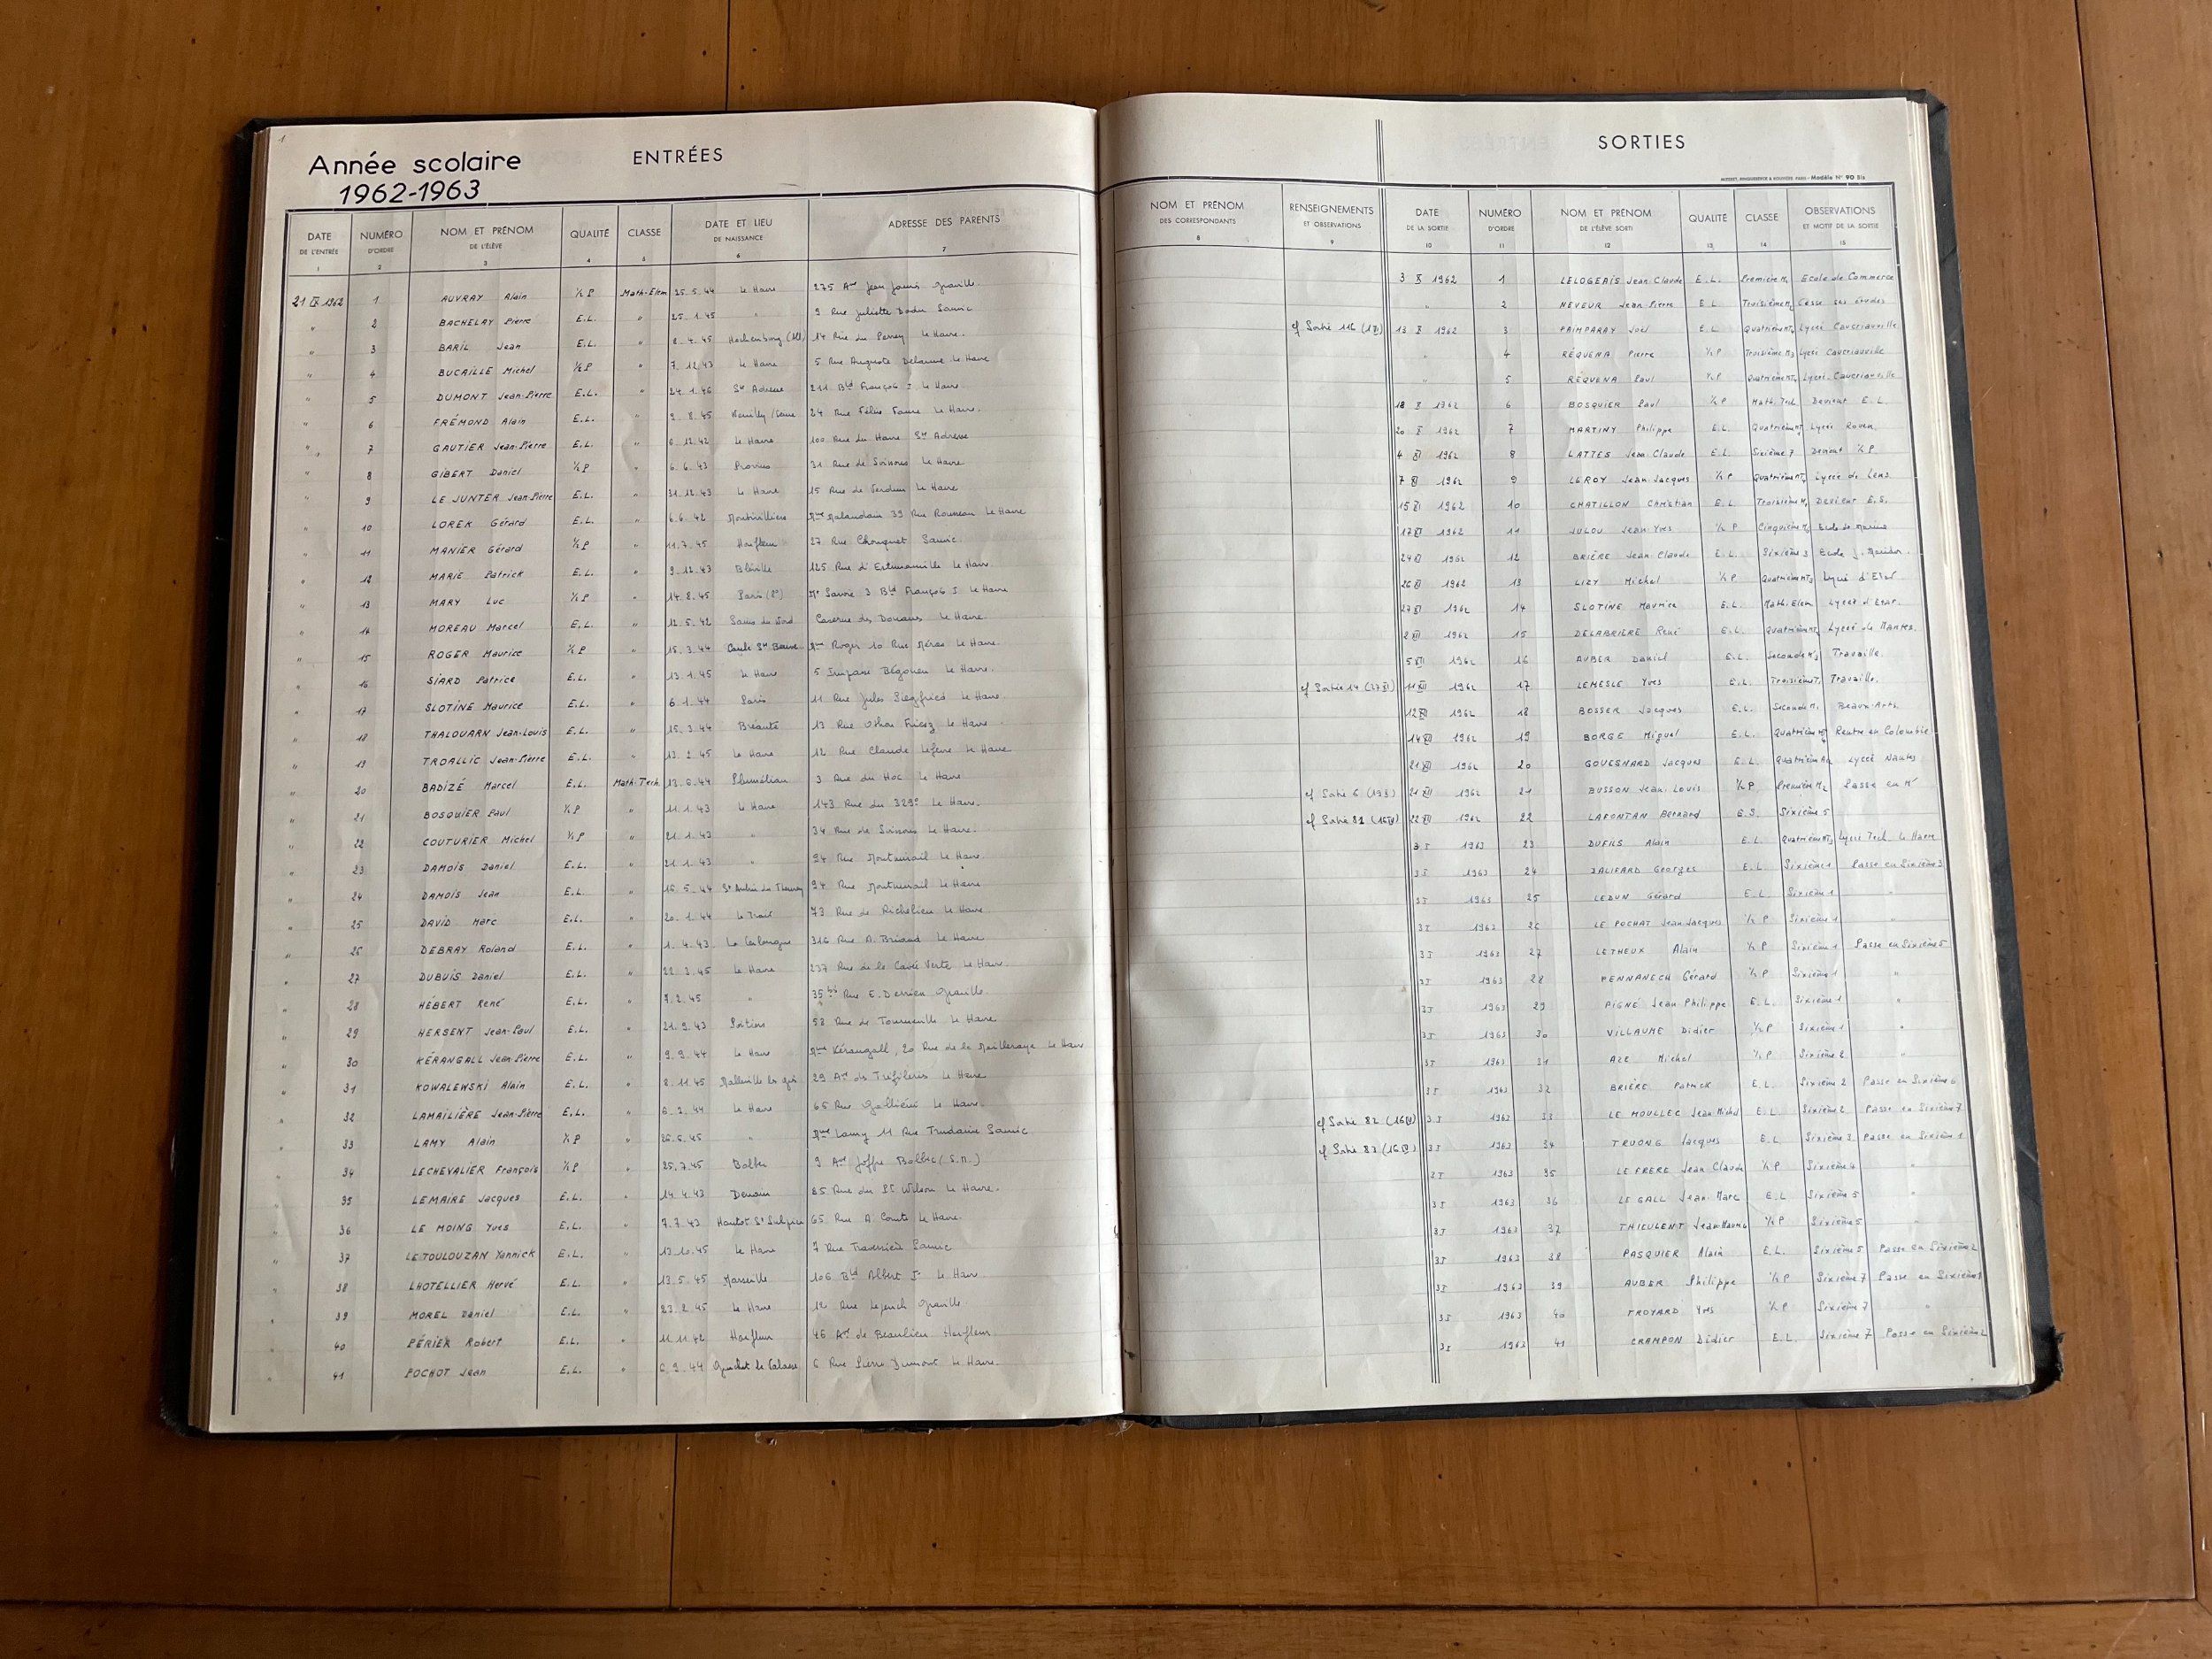 1
Année scolaire
1962-1963
ENTRÉES
DATE DE L'ENTRÉE 1
NUMÉRO D'ORDRE 2
NOM ET PRÉNOM DE L'ÉLÈVE 3
QUALITÉ 4
CLASSE 5
DATE ET LIEU DE NAISSANCE 6
ADRESSE DES PARENTS 7
21 IX 1962 1 AUVRAY Alain ½ P Math-Elem 25.5.44 Le Havre 275 Jean Jaurès Graville
" 2 BACHELAY Pierre E.L. " 25.1.45 " 9 Rue Juliette Dodu Sanvic
" 3 BARIL Jean E.L. " 8.4.45 14 Rue du Perrey Le Havre.
" 4 BUCAILLE Michel ½ P " 7.12.43 Le Havre 5 Rue Auguste Delaune Le Havre
" 5 DUMONT Jean-Pierre E.L. " 24.1.46 Ste Adresse 211 Bld François I Le Havre.
" 6 FRÉMOND Alain E.L. " 9.8.45 Neuilly/Seine 24 Rue Félix Faure Le Havre.
" 7 GAUTIER Jean-Pierre E.L. " 6.12.42 Le Havre 100 Rue du Havre Ste Adresse
" 8 GIBERT Daniel ½ P " 6.6.43 Provins 31 Rue de Soissons Le Havre
" 9 LE JUNTER Jean-Pierre E.L. " 31.12.43 Le Havre 15 Rue de Verdun Le Havre
" 10 LOREK Gérard E.L. " 6.6.42 Montivilliers Mme Malandain 39 Rue Rousseau Le Havre
" 11 MANIER Gérard ½ P " 11.7.45 Harfleur 27 Rue Chouquet Sanvic.
" 12 MARIE Patrick E.L. " 9.12.43 Bléville 125 Rue d'Estimauville Le Havre.
" 13 MARY Luc ½ P " 14.8.45 Savoie 3 Bld François I. Le Havre
" 14 MOREAU Marcel E.L. " 12.5.42 Caserne des Douanes Le Havre.
" 15 ROGER Maurice ½ P " 15.3.44 Caule Ste Beuve Mme Roger 10 Rue Le Havre.
" 16 SIARD Patrice E.L. " 13.1.45 Le Havre 5 Impasse Bégouen Le Havre.
" 17 SLOTINE Maurice E.L. " 6.1.44 Paris 11 Rue Jules Siegfried Le Havre.
" 18 THALOUARN Jean-Louis E.L. " 15.3.44 Bréauté 13 Rue Othon Friesz Le Havre
" 19 TROALLIC Jean-Pierre E.L. " 13.2.45 Le Havre 12 Rue Claude Lefèvre Le Havre
" 20 BADIZÉ Marcel E.L. Math-Tech 13.6.44 Plumélian 3 Rue du Hoc Le Havre
" 21 BOSQUIER Paul ½ P " 11.1.43 Le Havre 143 Rue du 329e Le Havre.
" 22 COUTURIER Michel ½ P " 21.1.43 " 34 Rue de Soissons Le Havre.
" 23 DAMOIS Daniel E.L. " 21.1.43 " 94 Rue Montmirail Le Havre.
" 24 DAMOIS Jean E.L. " 16.5.44 94 Rue Montmirail Le Havre
" 25 DAVID Marc E.L. " 20.1.44 Le Trait 73 Rue de Richelieu Le Havre
" 26 DEBRAY Roland E.L. " 1.4.43 316 Rue A. Briand Le Havre
" 27 DUBUIS Daniel E.L. " 22.3.45 Le Havre 237 Rue de la Cavée Verte Le Havre.
" 28 HÉBERT René E.L. " 7.2.45 " 35 bis Rue E. Derrien Graville.
" 29 HERSENT Jean-Paul E.L. " 21.9.43 Poitiers 58 Rue de Tourneville Le Havre
" 30 KÉRANGALL Jean-Pierre E.L. " 9.9.44 Le Havre Mme Kérangall, 20 Rue de la Mailleraye Le Havre
" 31 KOWALEWSKI Alain E.L. " 8.11.45 29 Ave des Tréfileries Le Havre
" 32 LAMAILIÈRE Jean-Pierre E.L. " 6.2.44 Le Havre 65 Rue Galliéni Le Havre.
" 33 LAMY Alain ½ P " 26.5.45 " Mme Lamy 11 Rue Trudaine Sanvic
" 34 LECHEVALIER François ½ P " 25.7.45 Bolbec 9 Ave Joffre Bolbec (S.M.)
" 35 LEMAIRE Jacques E.L. " 14.4.43 Denain 85 Rue du Pt Wilson Le Havre.
" 36 LE MOING Yves E.L. " 7.7.43 Hautot St Sulpice 65 Rue A. Comte Le Havre.
" 37 LE TOULOUZAN Yannick E.L. " 13.10.45 Le Havre 7 Rue Traversière Sanvic
" 38 LHOTELLIER Hervé E.L. " 13.5.45 Marseille 106 Bld Albert Ier Le Havre
" 39 MOREL Daniel E.L. " 23.2.45 Le Havre 12 Rue Graville.
" 40 PÉRIER Robert E.L. " 11.11.42 Harfleur 46 Ave de Beaulieu Harfleur.
" 41 POCHOT Jean E.L. " 6.9.44 6 Rue Pierre Dumont Le Havre.
SORTIES
Modèle N° 90 Bis
NOM ET PRÉNOM DES CORRESPONDANTS 8
RENSEIGNEMENTS ET OBSERVATIONS 9
DATE DE LA SORTIE 10
NUMÉRO D'ORDRE 11
NOM ET PRÉNOM DE L'ÉLÈVE SORTI 12
QUALITÉ 13
CLASSE 14
OBSERVATIONS ET MOTIF DE LA SORTIE 15
3 X 1962 1 LELOGEAIS Jean-Claude E.L. Première Ecole de Commerce
" 2 NEVEUR Jean-Pierre E.L. Troisième Cesse ses études
cf Sortie 116 13 X 1962 3 PAIMPARAY Joël E.L. Quatrième Lycée Caucriauville
" 4 RÉQUENA Pierre ½ P Troisième Lycée Caucriauville
" 5 RÉQUENA Paul ½ P Quatrième Lycée Caucriauville
18 X 1962 6 BOSQUIER Paul ½ P Math. Tech. Devient E.L.
20 X 1962 7 MARTINY Philippe E.L. Quatrième Lycée Rouen
4 XI 1962 8 LATTES Jean-Claude E.L. Sixième 7 Devient ½ P.
7 XI 1962 9 LEROY Jean-Jacques ½ P Quatrième Lycée de Lens.
15 XI 1962 10 CHATILLON Christian E.L. Troisième Devient E.S.
17 XI 1962 11 JULOU Jean-Yves ½ P Cinquième Ecole de Marine
24 XI 1962 12 BRIÈRE Jean-Claude E.L. Sixième 3 Ecole
26 XI 1962 13 LIZY Michel ½ P Quatrième Lycée d'Etat
27 XI 1962 14 SLOTINE Maurice E.L. Math. Elem Lycée d'Etat.
2 XII 1962 15 DELABRIÈRE René E.L. Quatrième Lycée de Nantes.
5 XII 1962 16 AUBER Daniel E.L. Seconde Travaille.
cf Sortie 14 (27 XI) 11 XII 1962 17 LEMESLE Yves E.L. Troisième Travaille.
12 XII 1962 18 BOSSER Jacques E.L. Seconde Beaux-Arts.
14 XII 1962 19 BORGE Miguel E.L. Quatrième Rentre en Colombie
21 XII 1962 20 GOUEGNARD Jacques E.L. Quatrième Lycée Nantes
cf Sortie 6 (18 X) 21 XII 1962 21 BUSSON Jean-Louis ½ P Première Passe en M'
cf Sortie 81 22 XII 1962 22 LAFONTAN Bernard E.S. Sixième 5
3 I 1963 23 DUFILS Alain E.L. Quatrième Lycée Tech. Le Havre
3 I 1963 24 ZALIFARD Georges E.L. Sixième 1 Passe en Sixième 3
3 I 1963 25 LEDUN Gérard E.L. Sixième 1 "
3 I 1963 26 LE POCHAT Jean-Jacques ½ P Sixième 1 "
3 I 1963 27 LETHEUX Alain ½ P Sixième 1 Passe en Sixième 5
3 I 1963 28 PENNANECH Gérard ½ P Sixième 1 "
3 I 1963 29 PIGNÉ Jean-Philippe E.L. Sixième 1 "
3 I 1963 30 VILLAUME Didier ½ P Sixième 1 "
3 I 1963 31 AZE Michel ½ P Sixième 2 "
3 I 1963 32 BRIÈRE Patrick E.L. Sixième 2 Passe en Sixième 6
cf Sortie 82 3 I 1963 33 LE MOULLEC Jean-Michel E.L. Sixième 2 Passe en Sixième 7
cf Sortie 83 3 I 1963 34 TRUONG Jacques E.L. Sixième 3 Passe en Sixième 1
3 I 1963 35 LE FRERE Jean-Claude ½ P Sixième 4 "
3 I 1963 36 LE GALL Jean-Marc E.L. Sixième 5 "
3 I 1963 37 THIEULENT ½ P Sixième 5 "
3 I 1963 38 PASQUIER Alain E.L. Sixième 5 Passe en Sixième 2
3 I 1963 39 AUBER Philippe ½ P Sixième 7 Passe en Sixième
3 I 1963 40 TROYARD Yves ½ P Sixième 7 "
3 I 1963 41 CRAMPON Didier E.L. Sixième 7 Passe en Sixième 2